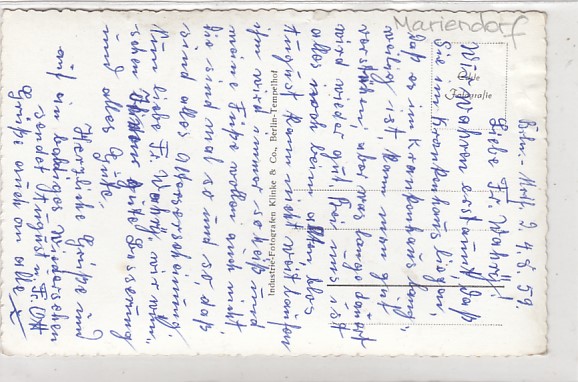 Mariendorf
Echte
Fotografie
Liebe Fr.
Wir wahren erstaunt, daß
Sie im Krankenhaus liegen,
daß es im Krankenhaus lang-
weilig ist, kann man gut
verstehen aber was lange dauert
wird wieder gut, bei uns ist
alles noch beim alten, blos
August kann nicht weit laufen
ihm wird immer so heiß und
meine Füße wollen auch nicht,
sie sind mal so und so, daß
sind alles Alterserscheinung.
Nun liebe Fr. wir wün-
schen gute Besserung
und alles Gute.
Herzliche Grüße und
auf ein baldiges Wiedersehen
sendet August u.
Grüße auch an alle
Industrie-Fotografen Klinke & Co., Berlin-Tempelhof